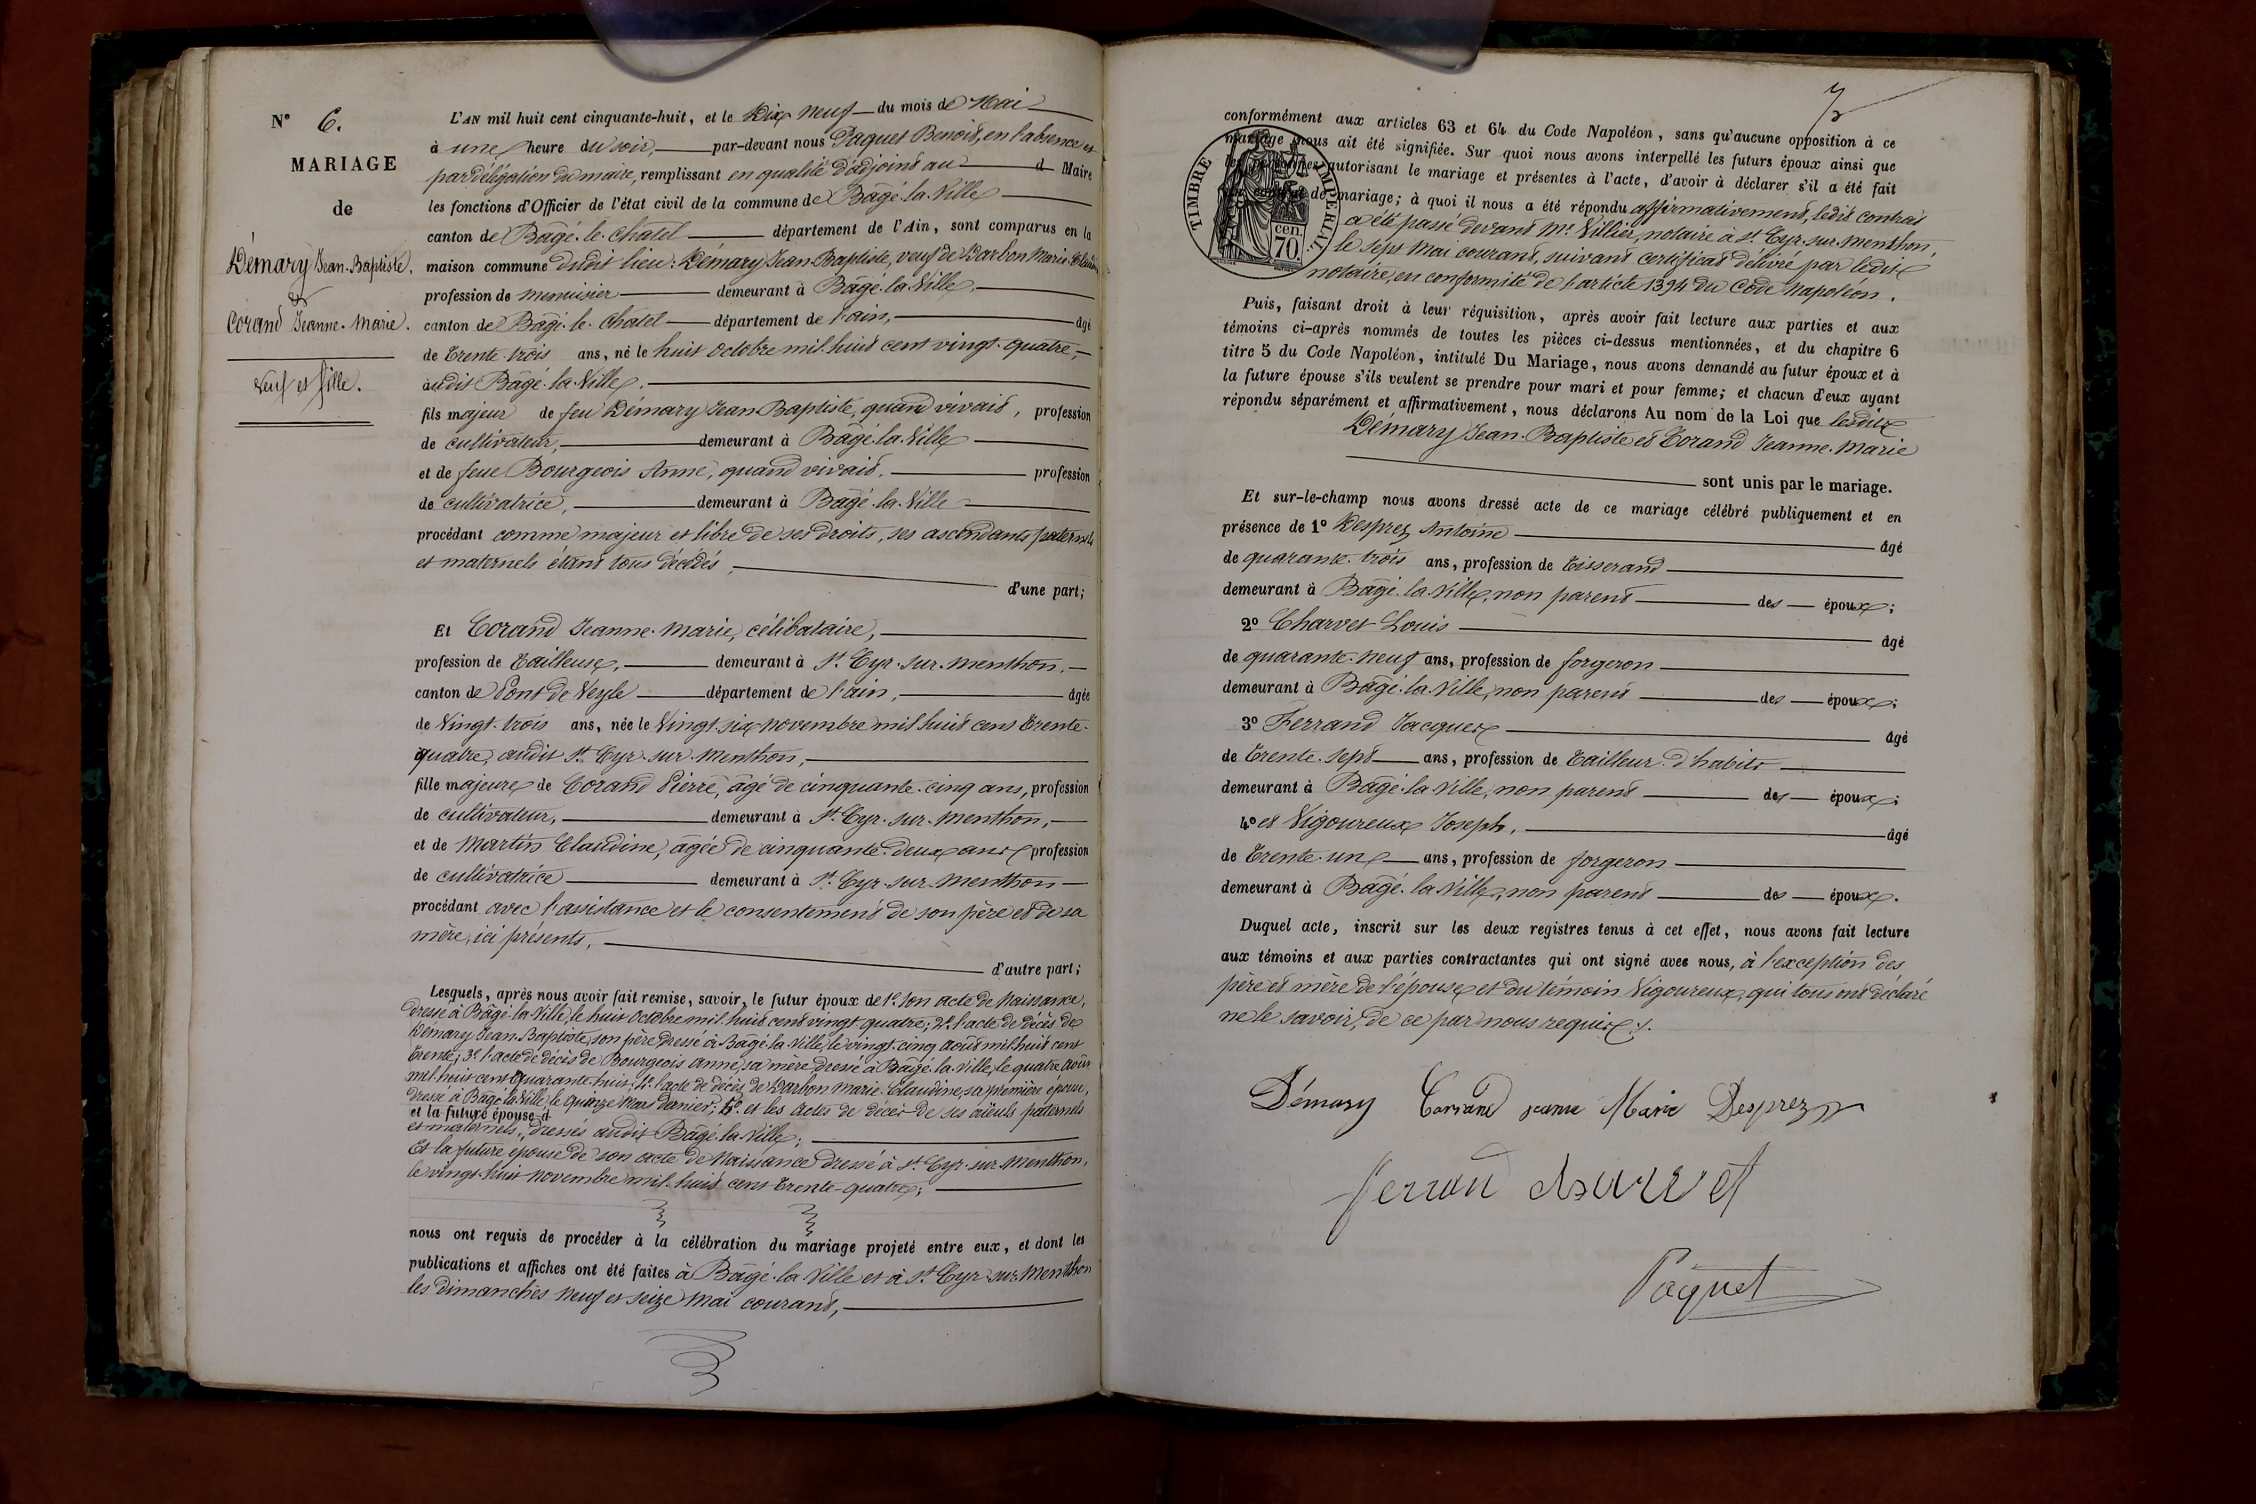 N° 6.
MARIAGE
de
Démary Jean-Baptiste,
&
Corand Jeanne-Marie.
Veuf et fille.
L'AN mil huit cent cinquante-huit, et le Dix neuf du mois de Mai
à une heure du soir, par-devant nous Paquet Benoit, en l'absence et
par délégation du maire, remplissant en qualité d'adjoint au d Maire
les fonctions d'Officier de l'état civil de la commune de Bâgé-la-Ville
canton de Bâgé-le-Chatel département de l'Ain, sont comparus en la
maison commune dudit lieu: Démary Jean-Baptiste, veuf de Darbon Marie-Claudine
profession de menuisier demeurant à Bâgé-la-Ville,
canton de Bâgé-le-Chatel département de l'ain, âgé
de Trente trois ans, né le huit octobre mil-huit cent vingt-quatre,
audit Bâgé-la-Ville.
fils majeur de feu Démary Jean Baptiste, quand vivait, profession
de cultivateur, demeurant à Bâgé-la-Ville
et de feue Bourgeois Anne, quand vivait, profession
de cultivatrice, demeurant à Bâgé-la-Ville
procédant comme majeur et libre de ses droits, ses ascendants paternels
et maternels étant tous décédés, d'une part;
Et Corand Jeanne-Marie, célibataire,
profession de Tailleuse, demeurant à St Cyr-sur-menthon,
canton de Pont de Veyle département de l'ain, âgée
de Vingt-trois ans, née le Vingt-six novembre mil huit cent Trente-
quatre, audit St Cyr-sur-menthon,
fille majeure de Corand Pierre, âgé de cinquante-cinq ans, profession
de cultivateur, demeurant à St Cyr-sur-menthon,
et de Martin Claudine, âgée de cinquante-deux ans profession
de cultivatrice demeurant à St Cyr-sur-menthon
procédant avec l'assistance et le consentement de son père et de sa
mère, ici présents, d'autre part;
Lesquels, après nous avoir fait remise, savoir, le futur époux de 1° son acte de Naissance,
dressé à Bâgé-la-Ville, le huit octobre mil-huit cent vingt quatre; 2° l'acte de décès de
Démary Jean-Baptiste, son père dressé à Bâgé-la-Ville, le vingt-cinq août mil huit cent
Trente; 3° l'acte de décès de Bourgeois Anne, sa mère, dressé à Bâgé-la-Ville, le quatre août
mil-huit cent quarante-huit; 4° l'acte de décès de Darbon Marie-Claudine, sa première épouse,
dressé à Bâgé-la-Ville, le quinze Mars dernier; 5° et les actes de décès de ses aïeuls paternels
et la future épouse d
et maternels, dressés audit Bâgé-la-Ville;
Et la future épouse de son acte de Naissance dressé à St Cyr-sur-Menthon,
le vingt-huit novembre mil-huit cent Trente-quatre;
nous ont requis de procéder à la célébration du mariage projeté entre eux, et dont les
publications et affiches ont été faites à Bâgé-la-Ville et à St Cyr-sur-Menthon
les dimanches neuf et seize Mai courant,
7
conformément aux articles 63 et 64 du Code Napoléon, sans qu'aucune opposition à ce
mariage nous ait été signifiée. Sur quoi nous avons interpellé les futurs époux ainsi que
les personnes autorisant le mariage et présentes à l'acte, d'avoir à déclarer s'il a été fait
de mariage; à quoi il nous a été répondu affirmativement, ledit contrat
a été passé devant Me Villier, notaire à St Cyr-sur-menthon,
le sept Mai courant, suivant certificat délivré par ledit
notaire, en conformité de l'article 1394 du Code Napoléon.
TIMBRE IMPERIAL
70 cen.
Puis, faisant droit à leur réquisition, après avoir fait lecture aux parties et aux
témoins ci-après nommés de toutes les pièces ci-dessus mentionnées, et du chapitre 6
titre 5 du Code Napoléon, intitulé Du Mariage, nous avons demandé au futur époux et à
la future épouse s'ils veulent se prendre pour mari et pour femme; et chacun d'eux ayant
répondu séparément et affirmativement, nous déclarons Au nom de la Loi que lesdits
Démary Jean-Baptiste et Corand Jeanne-Marie
sont unis par le mariage.
Et sur-le-champ nous avons dressé acte de ce mariage célébré publiquement et en
présence de 1° Desprez Antoine âgé
de quarante-trois ans, profession de Tisserand
demeurant à Bâgé-la-Ville, non parent des époux;
2° Charvet Louis âgé
de quarante-neuf ans, profession de forgeron
demeurant à Bâgé-la-Ville, non parent des époux;
3° Ferrand Jacques âgé
de Trente-sept ans, profession de Tailleur d'habits
demeurant à Bâgé-la-Ville, non parent des époux;
4° et Vigoureux Joseph, âgé
de Trente-un ans, profession de forgeron
demeurant à Bâgé-la-Ville, non parent des époux.
Duquel acte, inscrit sur les deux registres tenus à cet effet, nous avons fait lecture
aux témoins et aux parties contractantes qui ont signé avec nous, à l'exception des
père et mère de l'épouse et du témoin Vigoureux, qui tous ont déclaré
ne le savoir, de ce par nous requis.
Démary Corrand jeanne Marie Desprez
ferrand charvet
Paquet